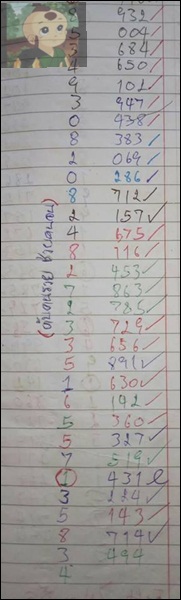 8 932 ✓
5 004 ✓
3 684 ✓
4 650 ✓
9 102 ✓
3 947 ✓
0 438 ✓
8 383 ✓
2 069 ✓
0 286 ✓
8 712 ✓
2 157 ✓
4 675 ✓
8 116 ✓
2 453 ✓
7 863 ✓
2 785 ✓
3 729 ✓
3 656 ✓
5 891 ✓
1 630 ✓
6 142 ✓
5 360 ✓
5 327 ✓
7 519 ✓
431
3 224 ✓
5 143 ✓
8 714 ✓
3 494
4